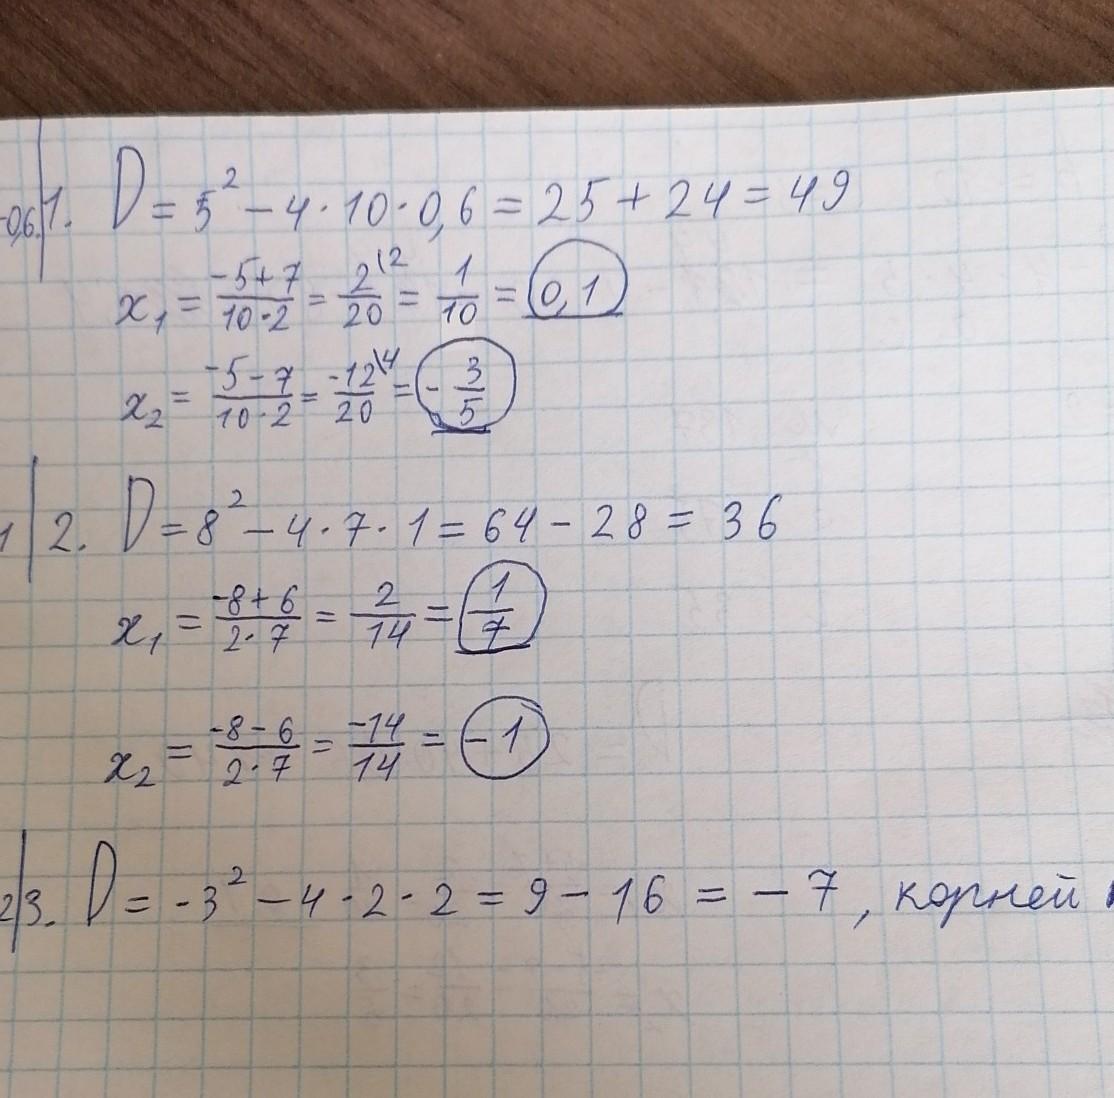 -0,6. 1. D = 5² - 4 · 10 · 0,6 = 25 + 24 = 49
x₁ = -5+7/10·2 = 2\2/20 = 1/10 = 0,1
x₂ = -5-7/10·2 = -12\4/20 = - 3/5
1 2. D = 8² - 4 · 7 · 1 = 64 - 28 = 36
x₁ = -8+6/2·7 = 2/14 = 1/7
x₂ = -8-6/2·7 = -14/14 = -1
2 3. D = -3² - 4 · 2 · 2 = 9 - 16 = - 7, корней